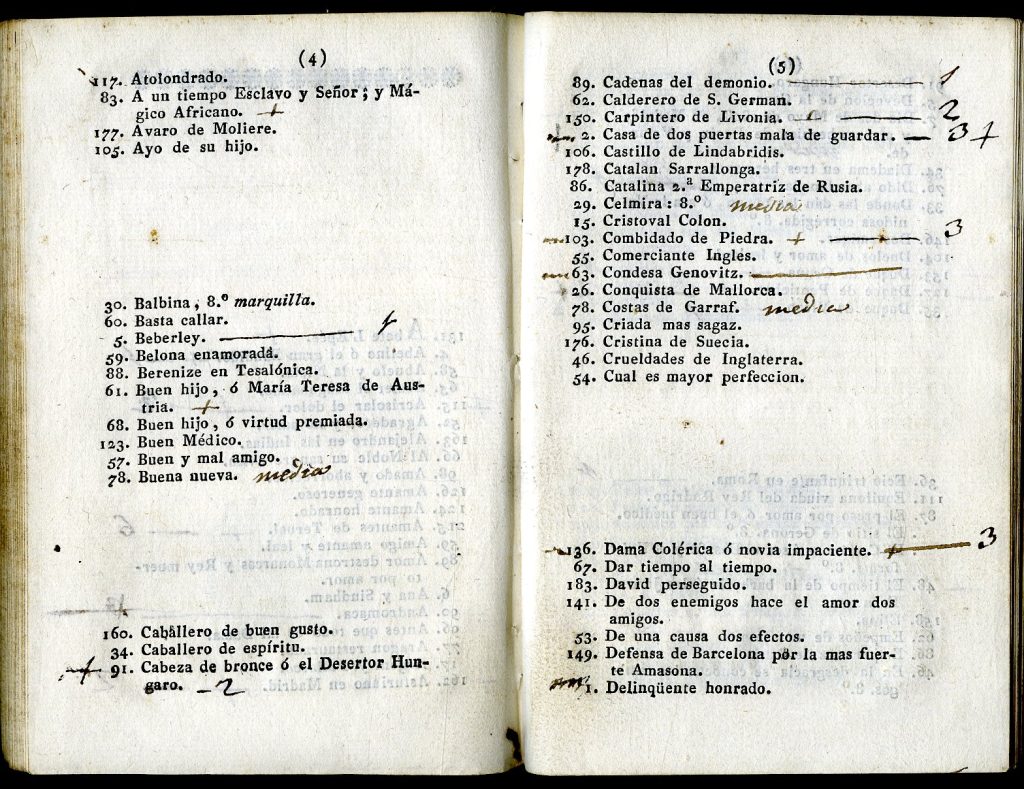 (4)
117. Atolondrado.
83. A un tiempo Esclavo y Señor; y Má-
gico Africano. +
177. Avaro de Moliere.
105. Ayo de su hijo.
30. Balbina, 8.º marquilla.
60. Basta callar.
5. Beberley.
59. Belona enamorada.
88. Berenize en Tesalónica.
61. Buen hijo, ó María Teresa de Aus-
tria. +
68. Buen hijo, ó virtud premiada.
123. Buen Médico.
57. Buen y mal amigo.
78. Buena nueva. media
160. Caballero de buen gusto.
34. Caballero de espíritu.
+ 91. Cabeza de bronce ó el Desertor Hun-
garo. - 2
(5)
89. Cadenas del demonio. 1
62. Calderero de S. German.
150. Carpintero de Livonia. 2
2. Casa de dos puertas mala de guardar. — 3 +
106. Castillo de Lindabridis.
178. Catalan Sarrallonga.
86. Catalina 2.ª Emperatriz de Rusia.
29. Celmira: 8.º media
15. Cristoval Colon.
103. Combidado de Piedra. + — 3
55. Comerciante Ingles.
63. Condesa Genovitz. —
26. Conquista de Mallorca.
78. Costas de Garraf. media
95. Criada mas sagaz.
176. Cristina de Suecia.
46. Crueldades de Inglaterra.
54. Cual es mayor perfeccion.
136. Dama Colérica ó novia impaciente. + — 3
67. Dar tiempo al tiempo.
183. David perseguido.
141. De dos enemigos hace el amor dos
amigos.
53. De una causa dos efectos.
149. Defensa de Barcelona por la mas fuer-
te Amasona.
1. Delinqüente honrado.